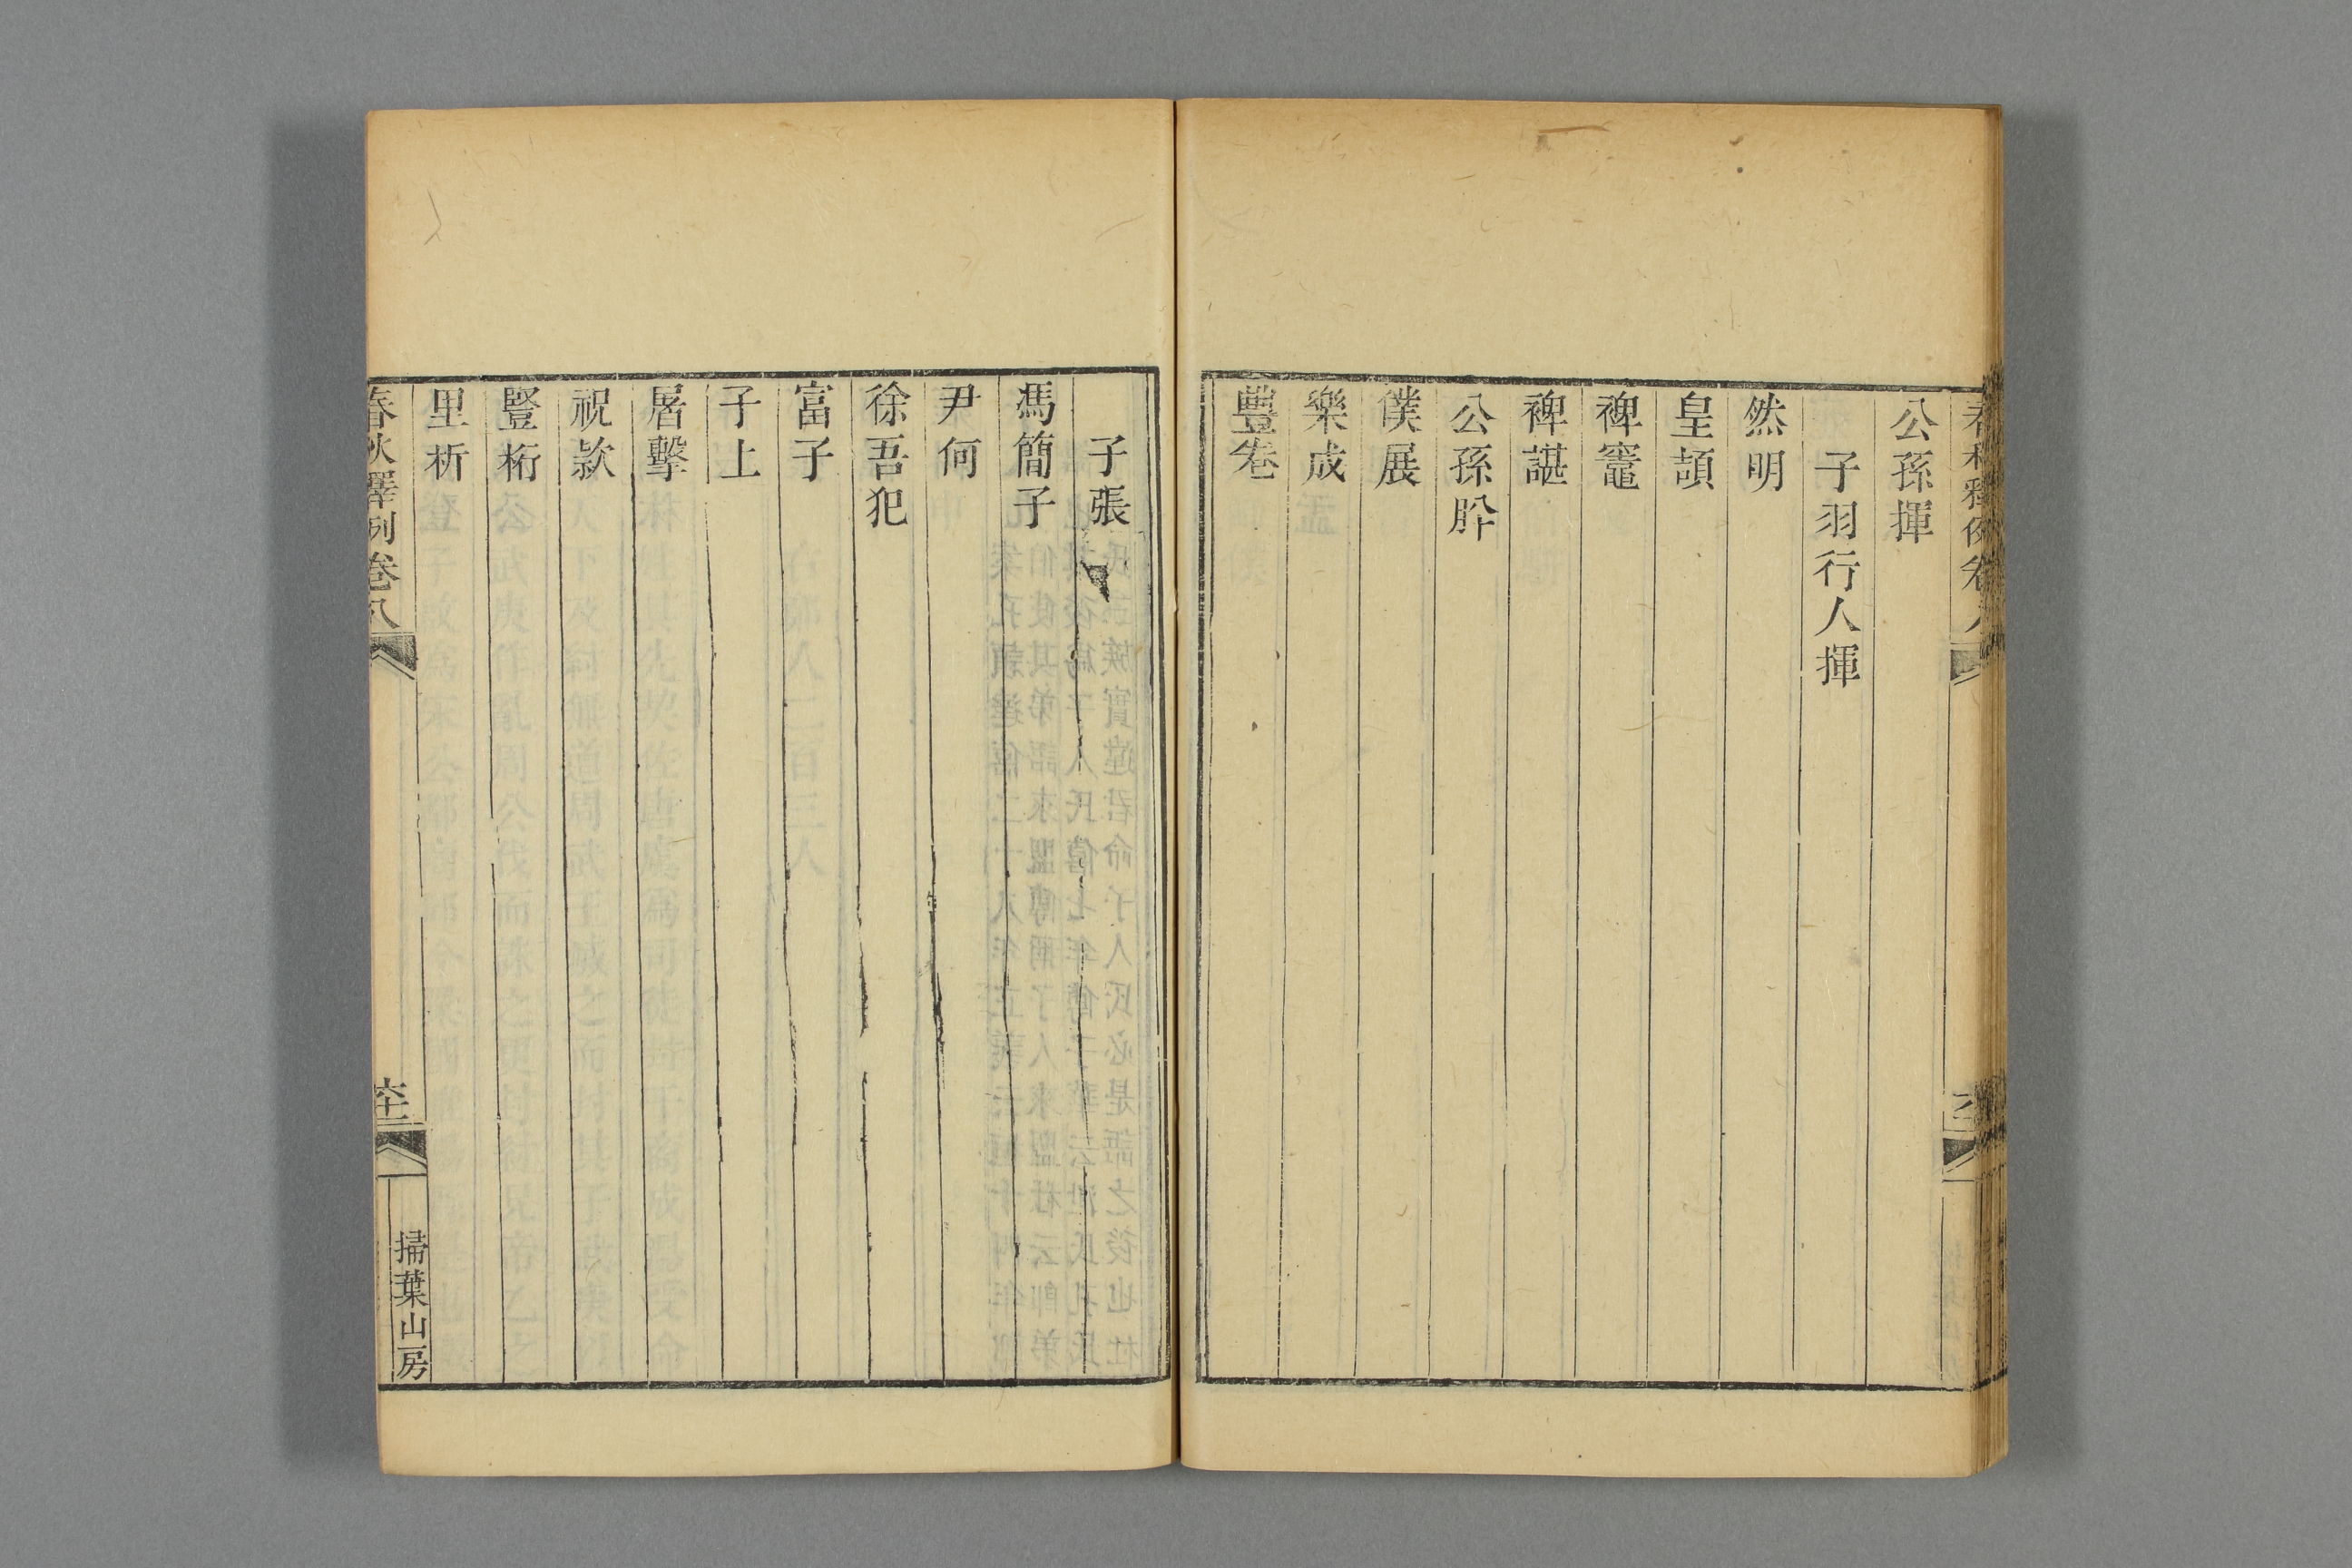 公孫揮
子羽行人揮
然明
皇頡
裨竈
裨諶
公孫肸
僕展
樂成
豐卷
子張
馮簡子
尹何
徐吾犯
富子
子上
屠擊
祝款
豎柎
里析
春秋釋例卷八
掃葉山房